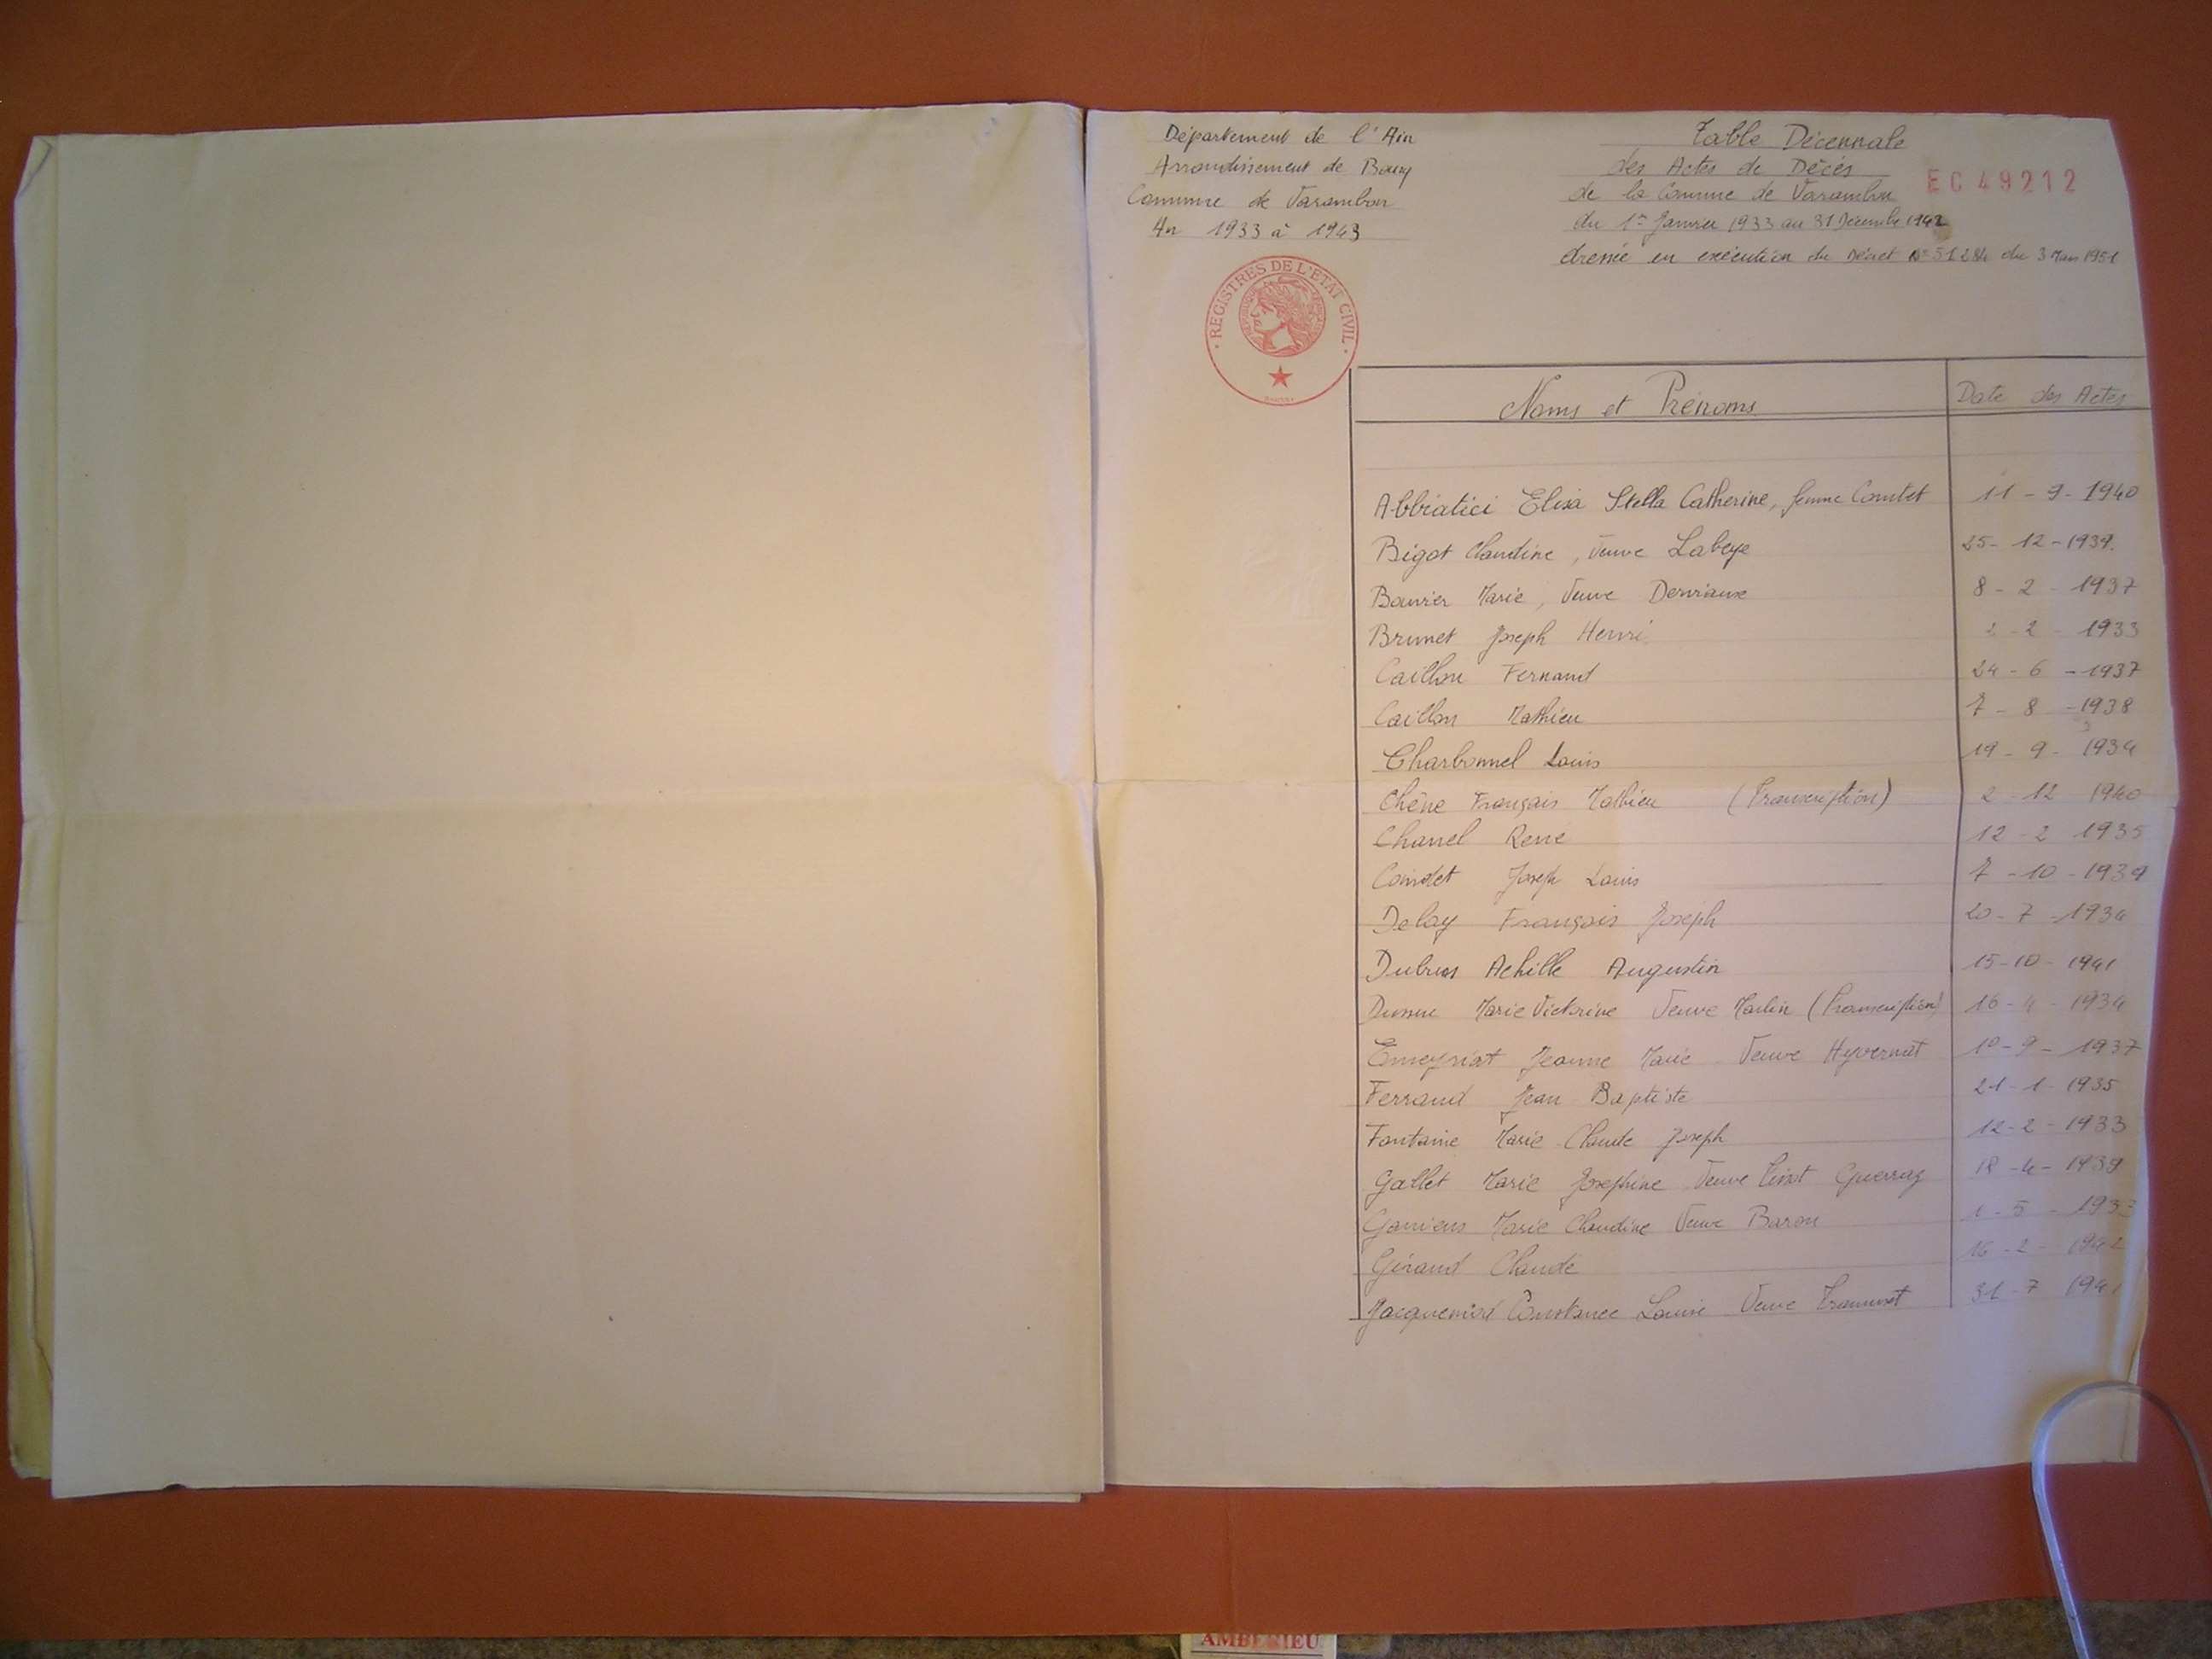 Département de l'Ain
Arrondissement de Bourg
Commune de Varambon
An 1933 à 1943
Table Décennale
des Actes de Décès
de la Commune de Varambon
du 1er Janvier 1933 au 31 Décembre 1942
dressée en exécution du Décret N° 51284 du 3 Mars 1951
EC 49212
REGISTRES DE L'ETAT CIVIL
Noms et Prénoms Date des Actes
Abbiatici Elisa Stella Catherine, femme Comtet 11 - 9 - 1940
Bigot Claudine, Veuve Labeye 25 - 12 - 1939
Bouvier Marie, Veuve Derviaux 8 - 2 - 1937
Brunet Joseph Henri 2 - 2 - 1933
Caillon Fernand 24 - 6 - 1937
Caillon Mathieu 7 - 8 - 1938
Charbonnel Louis 19 - 9 - 1934
Chêne François Mathieu (Transcription) 2 - 12 1940
Chanel René 12 - 2 1935
Joseph Louis 7 - 10 - 1939
Delay François Joseph 20 - 7 - 1934
Achille Augustin 15 - 10 - 1941
Marie Victorine Veuve Martin (Transcription) 16 - 4 - 1934
Emeyriat Jeanne Marie Veuve Hyvernat 10 - 9 - 1937
Ferrand Jean Baptiste 21 - 1 - 1935
Fontaine Marie Claude Joseph 12 - 2 - 1933
Gallet Marie Josephine Veuve Guerray 18 - 4 - 1939
Marie Claudine Veuve Baron 1 - 5 - 1933
Giraud Claude 16 - 2 - 1942
Jacquemod Constance Louise Veuve 31 - 7 1941
AMBERIEU